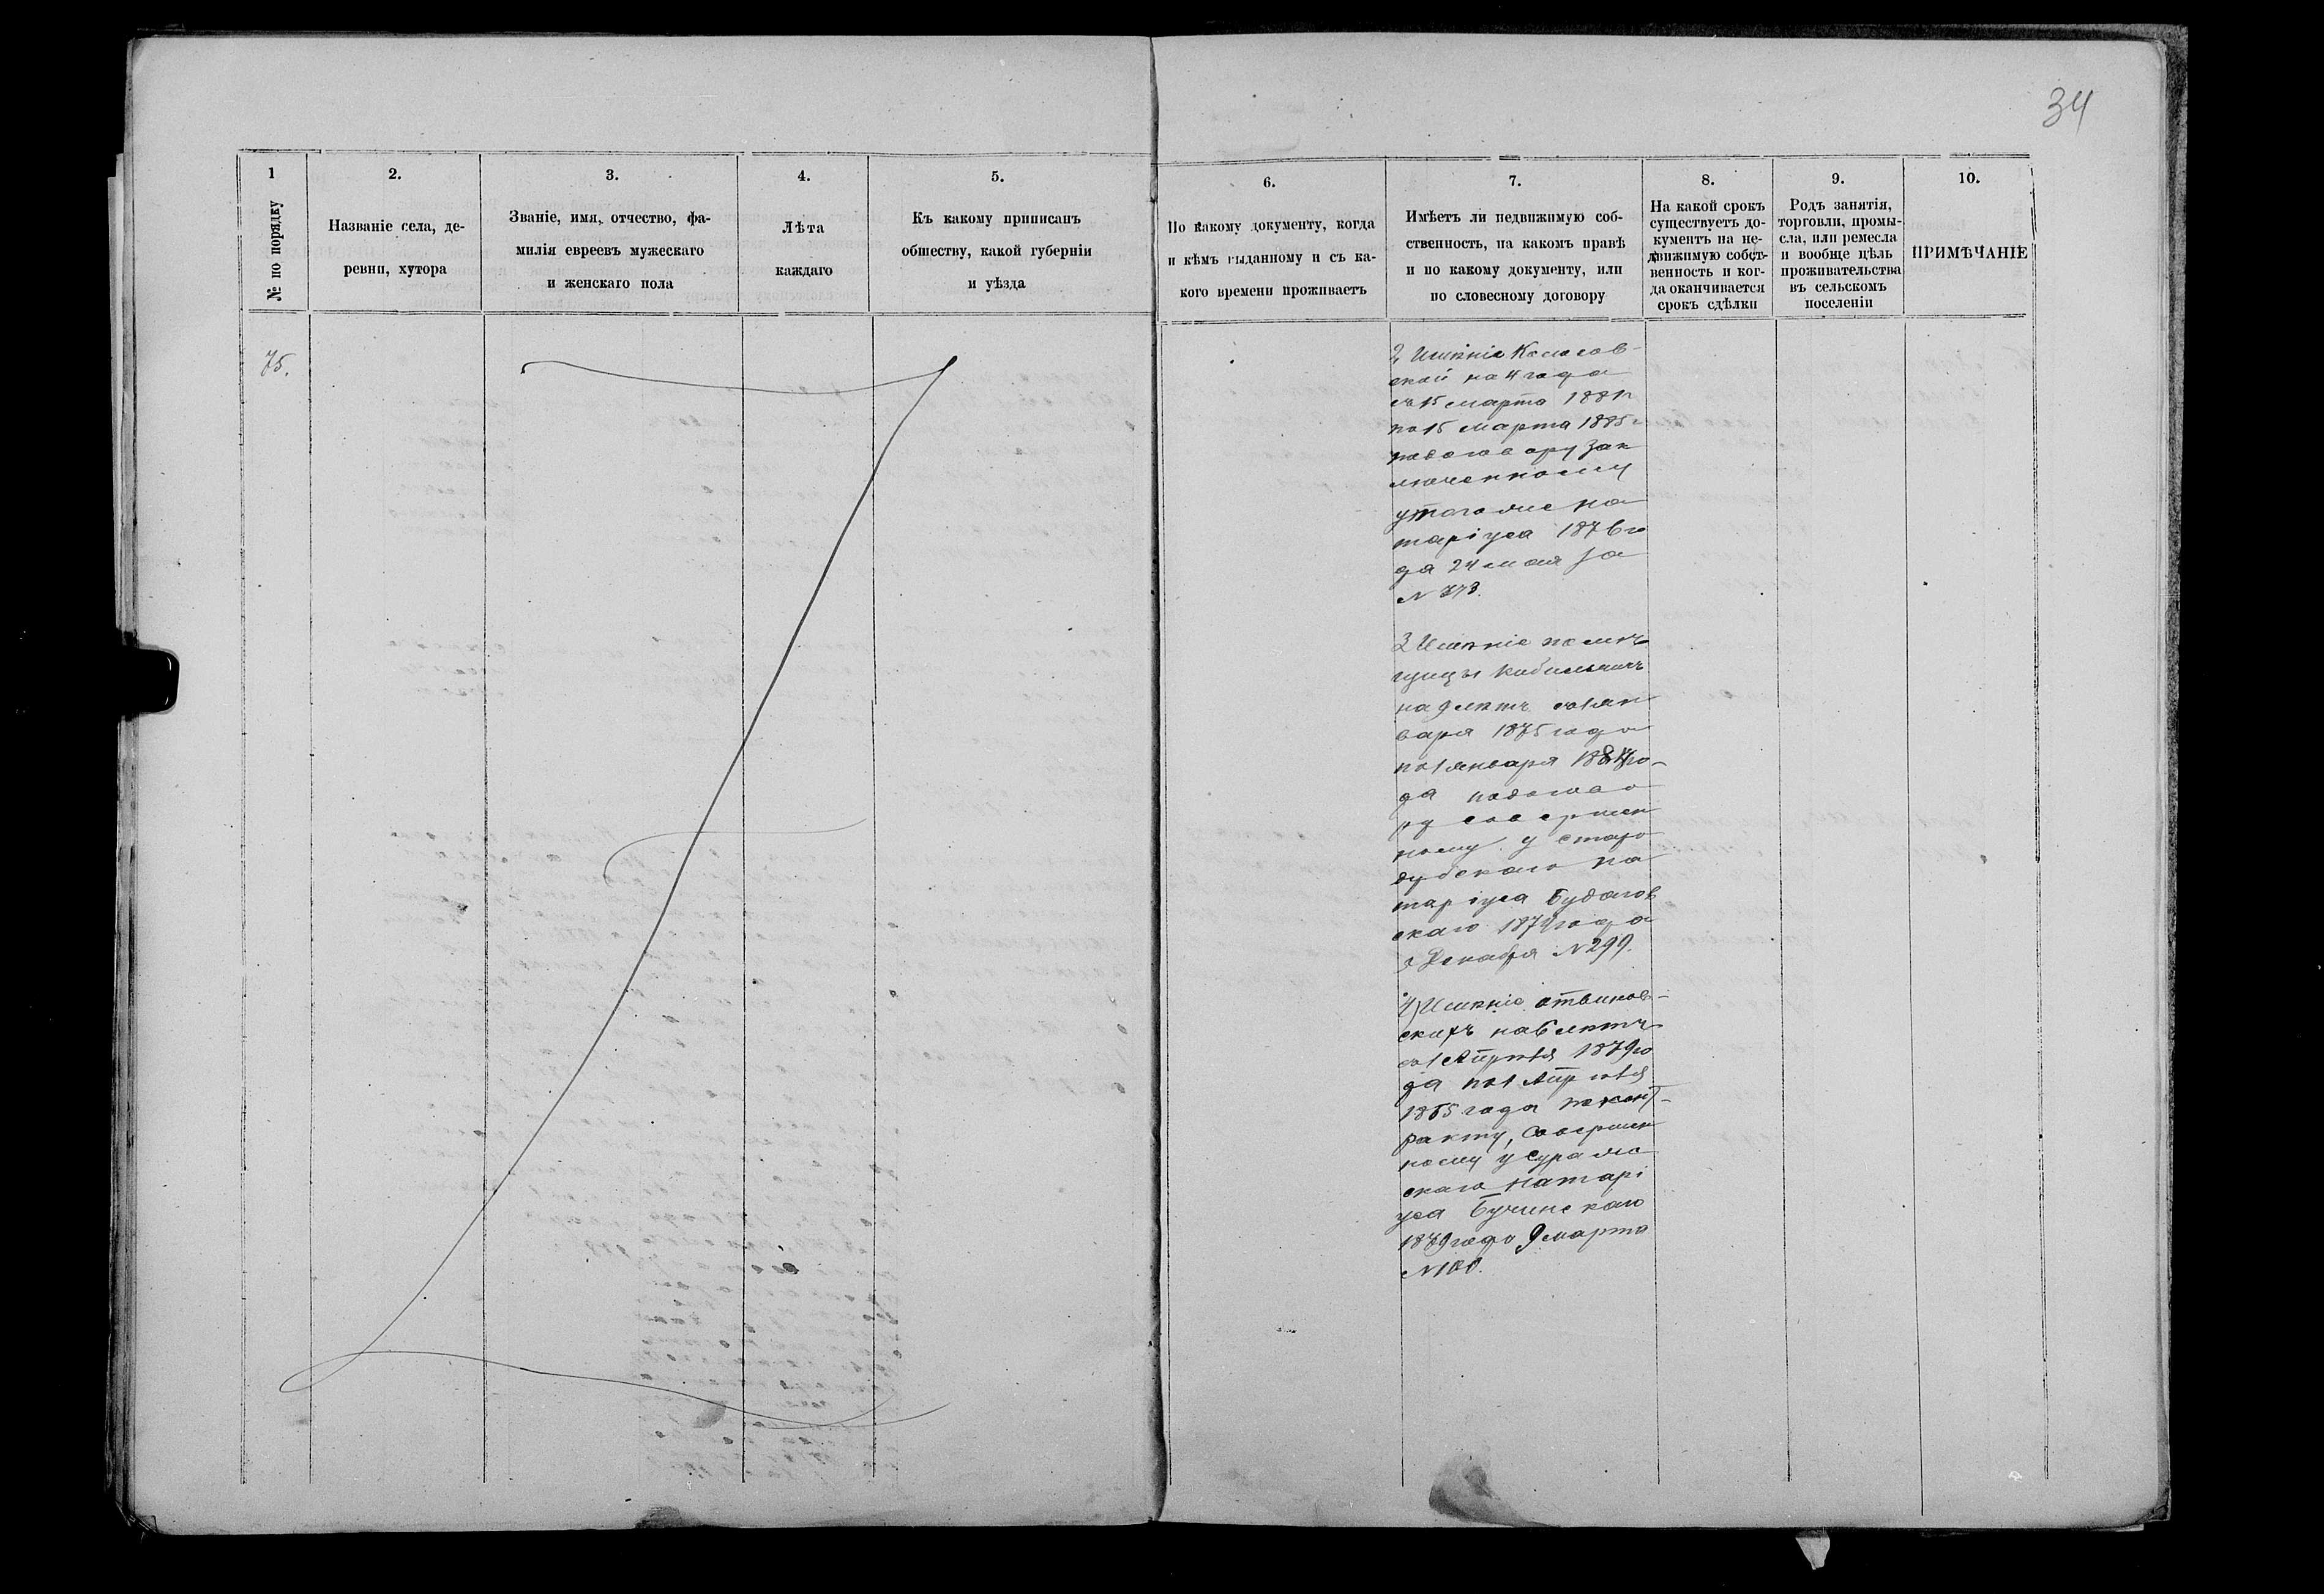 34
1
№ по порядку
2.
Названіе села, де-
ревни, хутора
3.
Званіе, имя, отчество, фа-
милія евреевъ мужескаго
и женскаго пола
4.
Лѣта
каждаго
5.
Къ какому приписанъ
обществу, какой губерніи
и уѣзда
6.
По какому документу, когда
и кѣмъ выданному и съ ка-
кого времени проживаетъ
7.
Имѣетъ ли недвижимую соб-
ственность, на какомъ правѣ
и по какому документу, или
по словесному договору
8.
На какой срокъ
существуетъ до-
кументъ на не-
движимую собст-
венность и ког-
да оканчивается
срокъ сдѣлки
9.
Родъ занятія,
торговли, промы-
сла, или ремесла
и вообще цѣль
проживательства
въ сельскомъ
поселеніи
10.
ПРИМѢЧАНІЕ
75.
2, Имѣніе
ской на 4 года
съ 15 марта 1881
по 15 марта 1885 г
по договору зак
люченному
у того же но
таріуса 1876 го
да 24 мая за
N 373.
3 Имѣніе помѣ
щицы
на 9 лѣтъ съ 1 ян
варя 1875 года
по 1 января 1884 го-
да по догово
ру совершен
ному у Старо
дубскаго но
таріуса Будагов
скаго 1874 года
Декабря N 299.
4) Имѣніе
скихъ на 6 лѣтъ
съ 1 Апрѣля 1879 го
да по 1 Апрѣля
1885 года по конт-
ракту, Совершен
ному у Сураж
скаго Натарі
уса Бучинскаго
1879 года 9 марта
N 100.